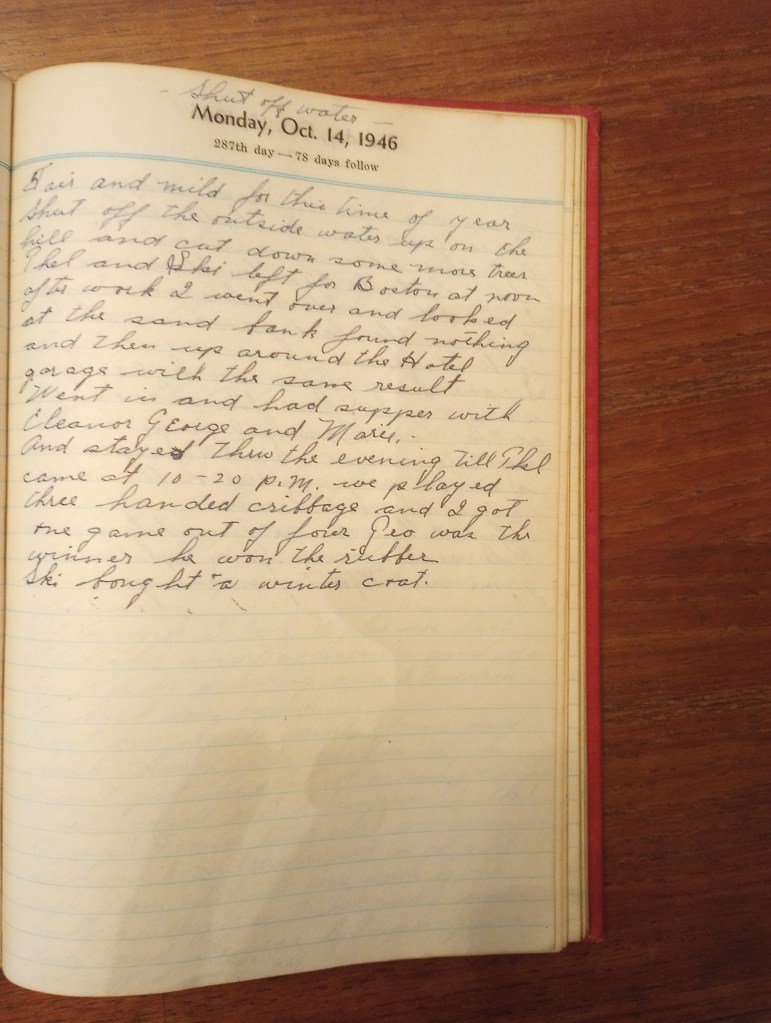 - Shut off water -
Monday, Oct. 14, 1946
287th day — 78 days follow
Fair and mild for this time of year
Shut off the outside water up on the
hill and cut down some more trees
Thel and Ski left for Boston at noon
after work I went over and looked
at the sand bank found nothing
and then up around the Hotel
garage with the same result
Went in and had supper with
Eleanor George and Marie.
And stayed thru the evening till Thel
came at 10-20 P.M. we played
three handed cribbage and I got
one game out of four Geo was the
winner he won the rubber
Ski bought a winter coat.